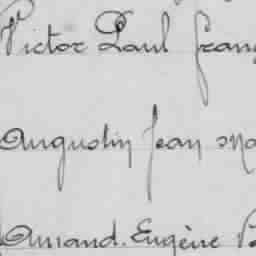 Victor Paul Franç
Augustin Jean Ma
Amand. Eugène